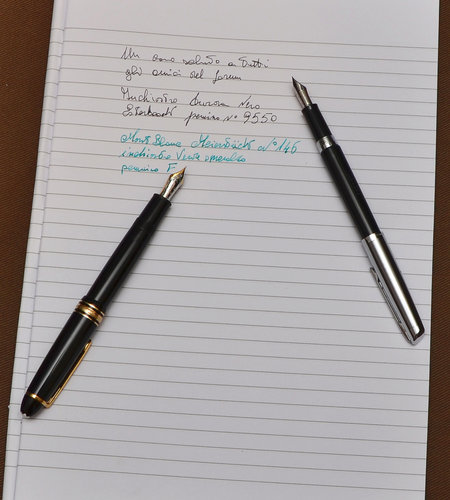 Un caro saluto a tutti
gli amici del forum
Inchiostro Aurora Nero
Esterbrook pennino n° 9550
Mont Blanc Meisterstück n° 146
inchiostro Verde smeraldo
pennino F